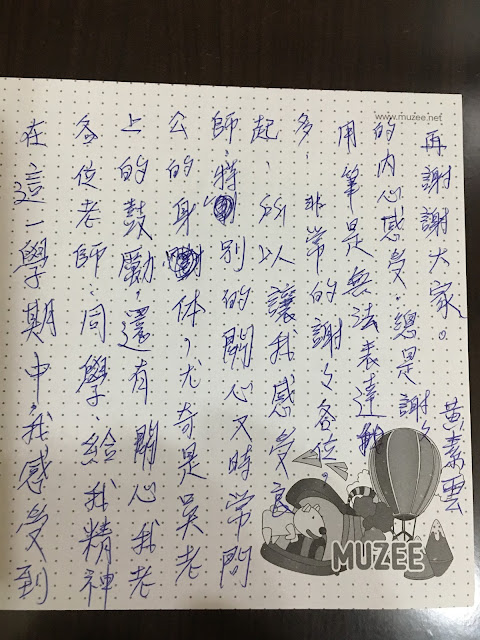 在這一學期中,我感受到
各位老師、同學、給我精神
上的鼓勵,還有關心我老
公的身体,尤奇是吳老
師,特別的關心又時常問
起,所以讓我感受良
多,非常的謝々各位。
用筆是無法表達
的內心感受,總是謝々
再謝謝大家。
黃素雲
www.muzee.net
MUZEE